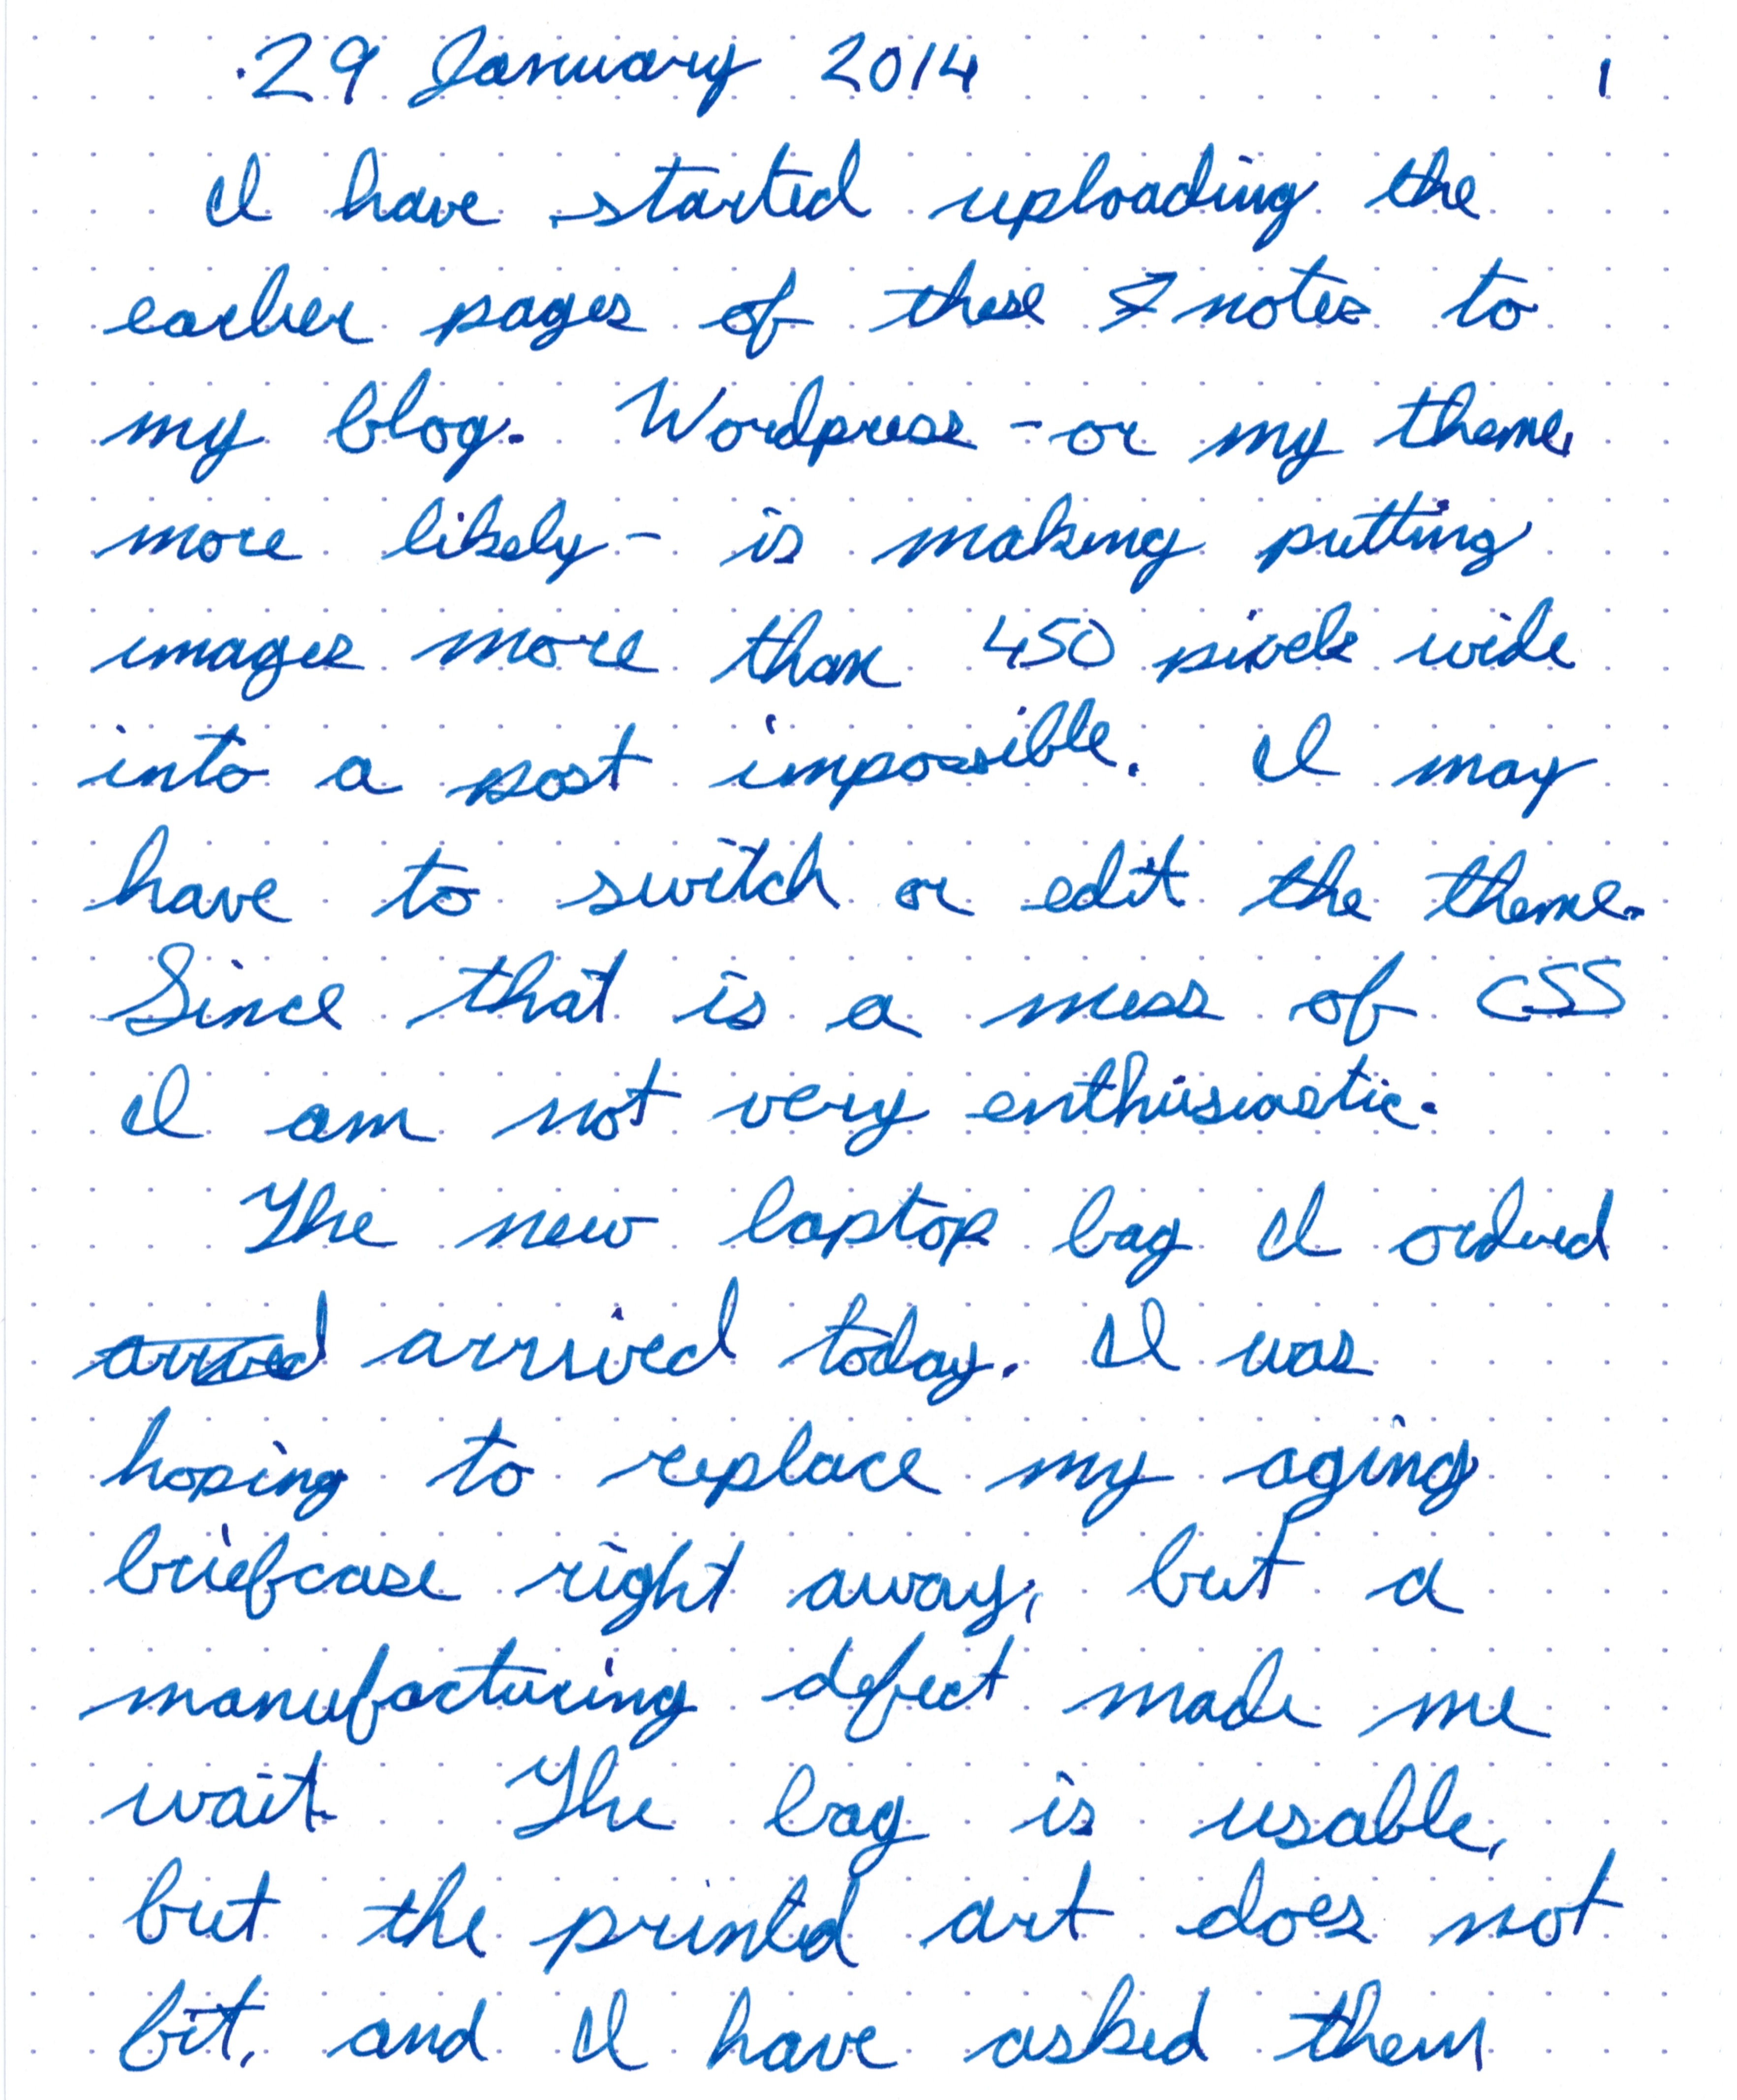 29 January 2014 1
I have started uploading the
earlier pages of these notes to
my blog. Wordpress - or my theme,
more likely - is making putting
images more than 450 pixels wide
into a post impossible. I may
have to switch or edit the theme.
Since that is a mess of CSS
I am not very enthusiastic.
The new laptop bag I ordered
arrived arrived today. I was
hoping to replace my aging
briefcase right away, but a
manufacturing defect made me
wait The bag is usable,
but the printed art does not
fit, and I have asked them